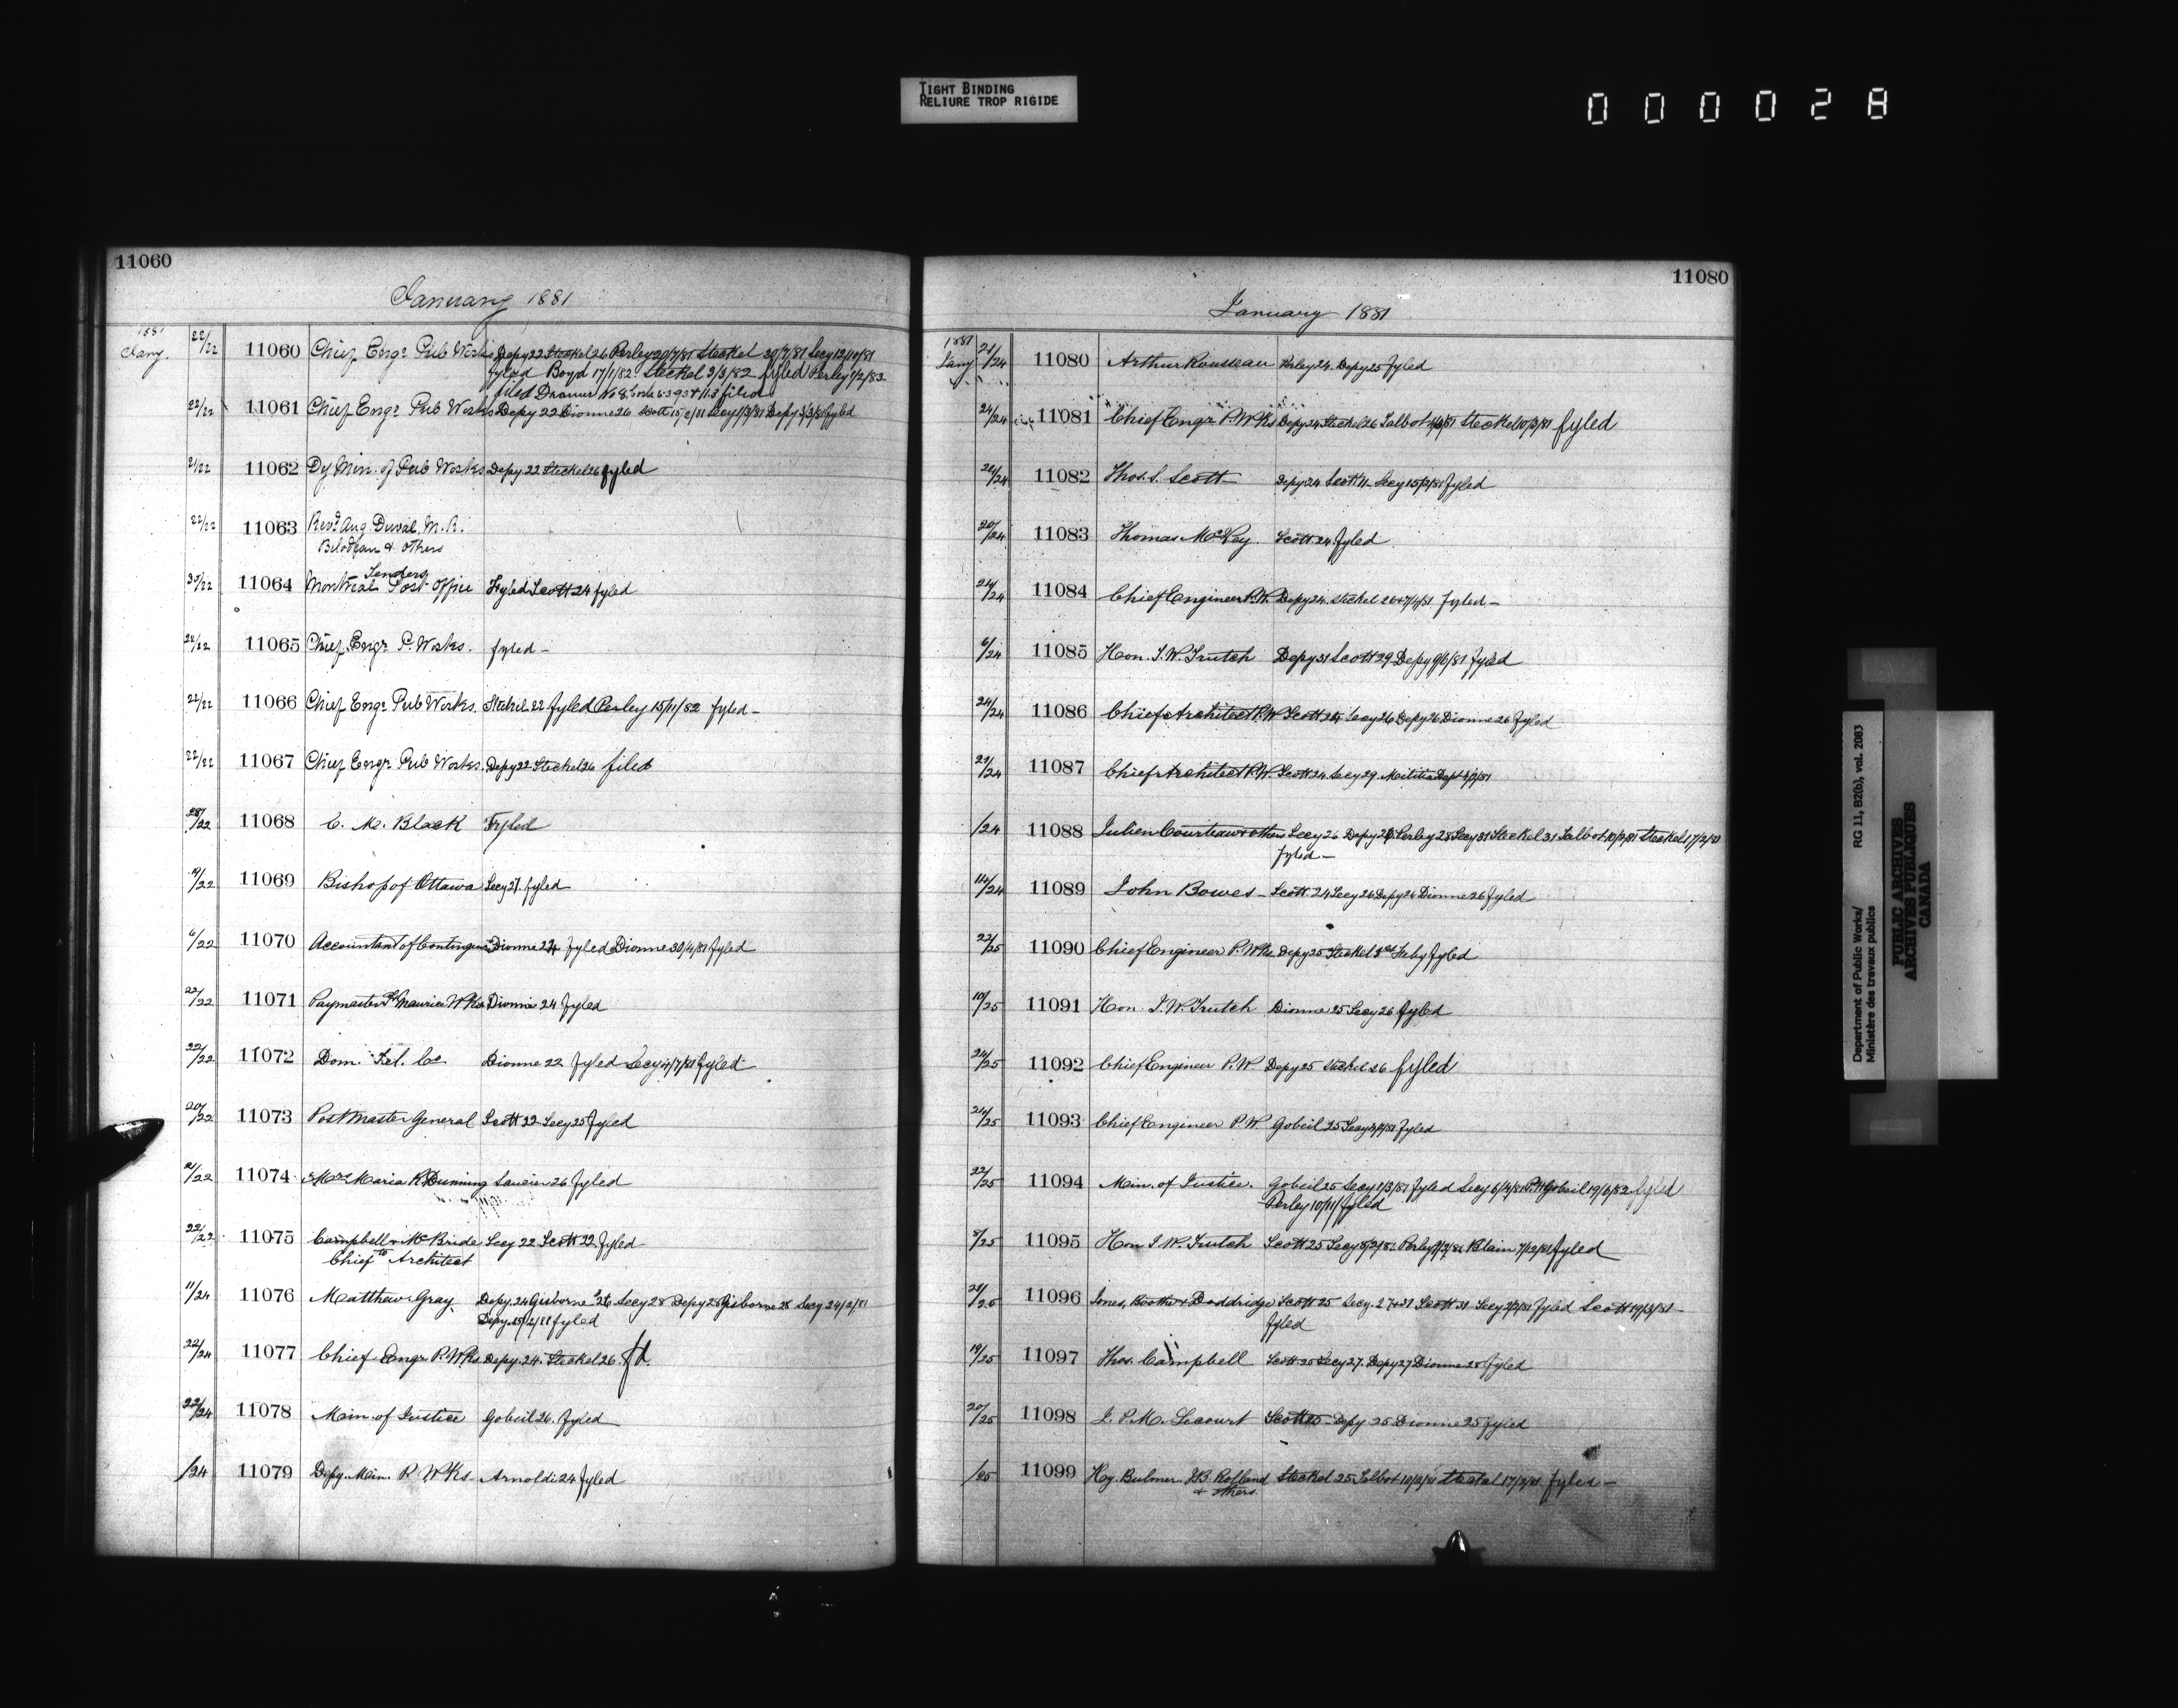 TIGHT BINDING
RELIURE TROP RIGIDE
000028
11060
January 1881
1881
Jany.
22/22 11060 Chief Engr Pub Works Depy 22 Steckel 26 Perley 20/7/81 Steckel 30/7/81 Secy 12/10/81
fyled Boyd 17/1/82 Steckel 3/3/82 fyled Perley 1/2/83
filed Drawer No 8
22/22 11061 Chief Engr Pub Works Depy 22 Dionne 26 Scott Secy 1/3/81 Depy 3/3/81 fyled
21/22 11062 Dy Min. of Pub Works Depy 22 Steckel 26 fyled
22/22 11063 Revd Aug Duval, M. R.
Bilodeau & others
Tenders
11064 Montreal Post Office Fyled Scott 24 fyled
22/22 11065 Chief Engr P. Works. fyled -
22/22 11066 Chief Engr Pub Works. Steckel 22 fyled Perley 15/11/82 fyled -
22/22 11067 Chief Engr Pub Works. Depy 22 Steckel 26 filed
11068 C. M. Black Fyled
19/22 11069 Bishop of Ottawa Secy 27. fyled
6/22 11070 Accountant of Contingencies Dionne 24 fyled Dionne 30/4/81 fyled
22/22 11071 Paymaster St Maurice Wks Dionne 24 fyled
22/22 11072 Dom. Tel. Co Dionne 22 fyled Secy fyled
20/22 11073 Postmaster General Scott 22 Secy 25 fyled
21/22 11074 Mrs Maria R Dunning 26 fyled
22/22 11075 Campbell & McBride Secy 22 Scott 22 fyled -
to
Chief Architect
11/24 11076 Matthew Gray. Depy. 24 Gisborne 26 Secy 28 Depy 28 Gisborne 28 Secy 24/2/81
Depy fyled
22/24 11077 Chief Engr P. Wks Depy. 24. Steckel 26. fd.
22/24 11078 Min. of Justice Gobeil 26. fyled
/24 11079 Depy. Min. P Wks. Arnoldi 24 fyled
11080
January 1881
1881
Jany
21/24 11080 Arthur Rousseau Perley 24. Depy 25 fyled
24/24 11081 Chief Engr P. Wks Depy 24 Steckel 26 Talbot Steckel 10/3/81 fyled
24/24 11082 Thos. S. Scott Depy 24 Scott Secy fyled
20/24 11083 Thomas McKay Scott 24 fyled
24/24 11084 Chief Engineer P. W. Depy 24. Steckel fyled -
6/24 11085 Hon. J. W. Trutch Depy 31 Scott 29 Depy 9/6/81 fyled
24/24 11086 Chief Architect P. W Scott 24 Secy 26 Depy 26 Dionne 26 fyled
11087 Chief Architect P. W. Scott 24 Secy 29 Militia Dept
/24 11088 Julien Courteau & others Secy 26 Depy Perley 28 Secy 31 Steckel 31 Talbot Steckel 17/2/81
fyled -
14/24 11089 John Bowes - Scott. 24 Secy 26 Depy 26 Dionne 26 fyled
22/25 11090 Chief Engineer P. Wks. Depy 25 Steckel Feby fyled
10/25 11091 Hon. J. W. Trutch Dionne 25 Secy 26 fyled
24/25 11092 Chief Engineer P. W Depy 25 Steckel 26 fyled
24/25 11093 Chief Engineer P W Gobeil 25 Secy fyled
22/25 11094 Min. of Justice. Gobeil 25 Secy 1/3/81 fyled Secy 6/4/81 Gobeil 19/6/82 fyled
Perley 10/11/ fyled
8/25 11095 Hon J W. Trutch Scott 25 Secy Perley Blain 7/12/81 fyled
11096 Jones, Boothe & Doddridge Scott 25 Secy. 27 Scott 31 Secy fyled Scott 19/3/81 -
fyled
19/25 11097 Thos. Campbell Scott 25 Secy 27. Depy 27 Dionne 28 fyled
20/25 11098 J. P. M. Lecourt Scott 25 - Depy 25 Dionne 25 fyled
/25 11099 Hy. Bulmer. Rolland Steckel 25 Talbot Steckel 17/2/81 fyled -
& others.
Department of Public Works/ RG 11, B2(b), vol. 2083
Ministère des travaux publics
PUBLIC ARCHIVES
ARCHIVES PUBLIQUES
CANADA